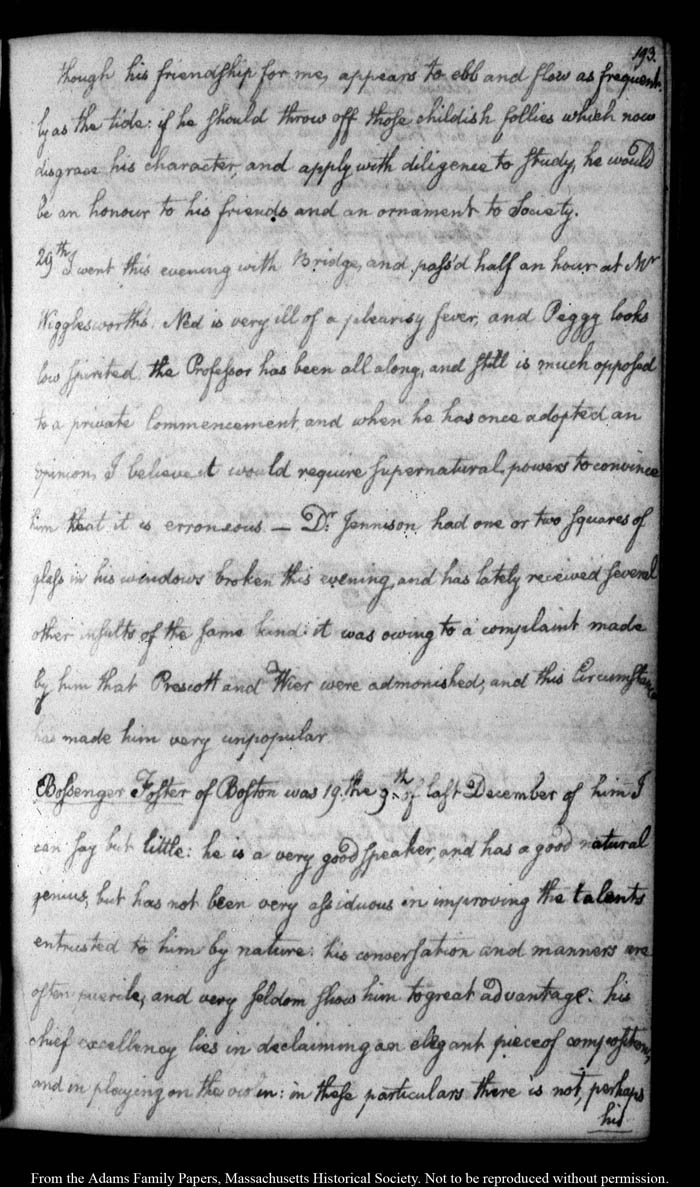 193.
though his friendship for me, appears to ebb and flow as frequent-
ly as the tide: if he should throw off those childish follies which now
disgrace his character, and apply with diligence to study, he would
be an honour to his friends and an ornament to Society.
29th I went this evening with Bridge, and pass'd half an hour at Mr
Wigglesworth's. Ned is very ill of a pleurisy fever, and Peggy looks
low spirited. the Professor has been all along, and still is much opposed
to a private Commencement, and when he has once adopted an
opinion, I believe it would require supernatural, powers to convince
him that it is erroneous. — Dr. Jennison had one or two squares of
glass in his windows broken this evening, and has lately received several
other insults of the same kind: it was owing to a complaint made
by him that Prescott and Wier were admonished, and this Circumstance
has made him very unpopular.
Bossenger Foster of Boston was 19. the 9th of last December of him I
can say but little: he is a very good speaker, and has a good natural
genius, but has not been very assiduous in improving the talents
entrusted to him by nature: his conversation and manners are
often puerile, and very seldom show him to great advantage: his
chief excellency lies in declaiming an elegant piece of composition,
and in playing on the violin: in these particulars there is not, perhaps
his
From the Adams Family Papers, Massachusetts Historical Society. Not to be reproduced without permission.